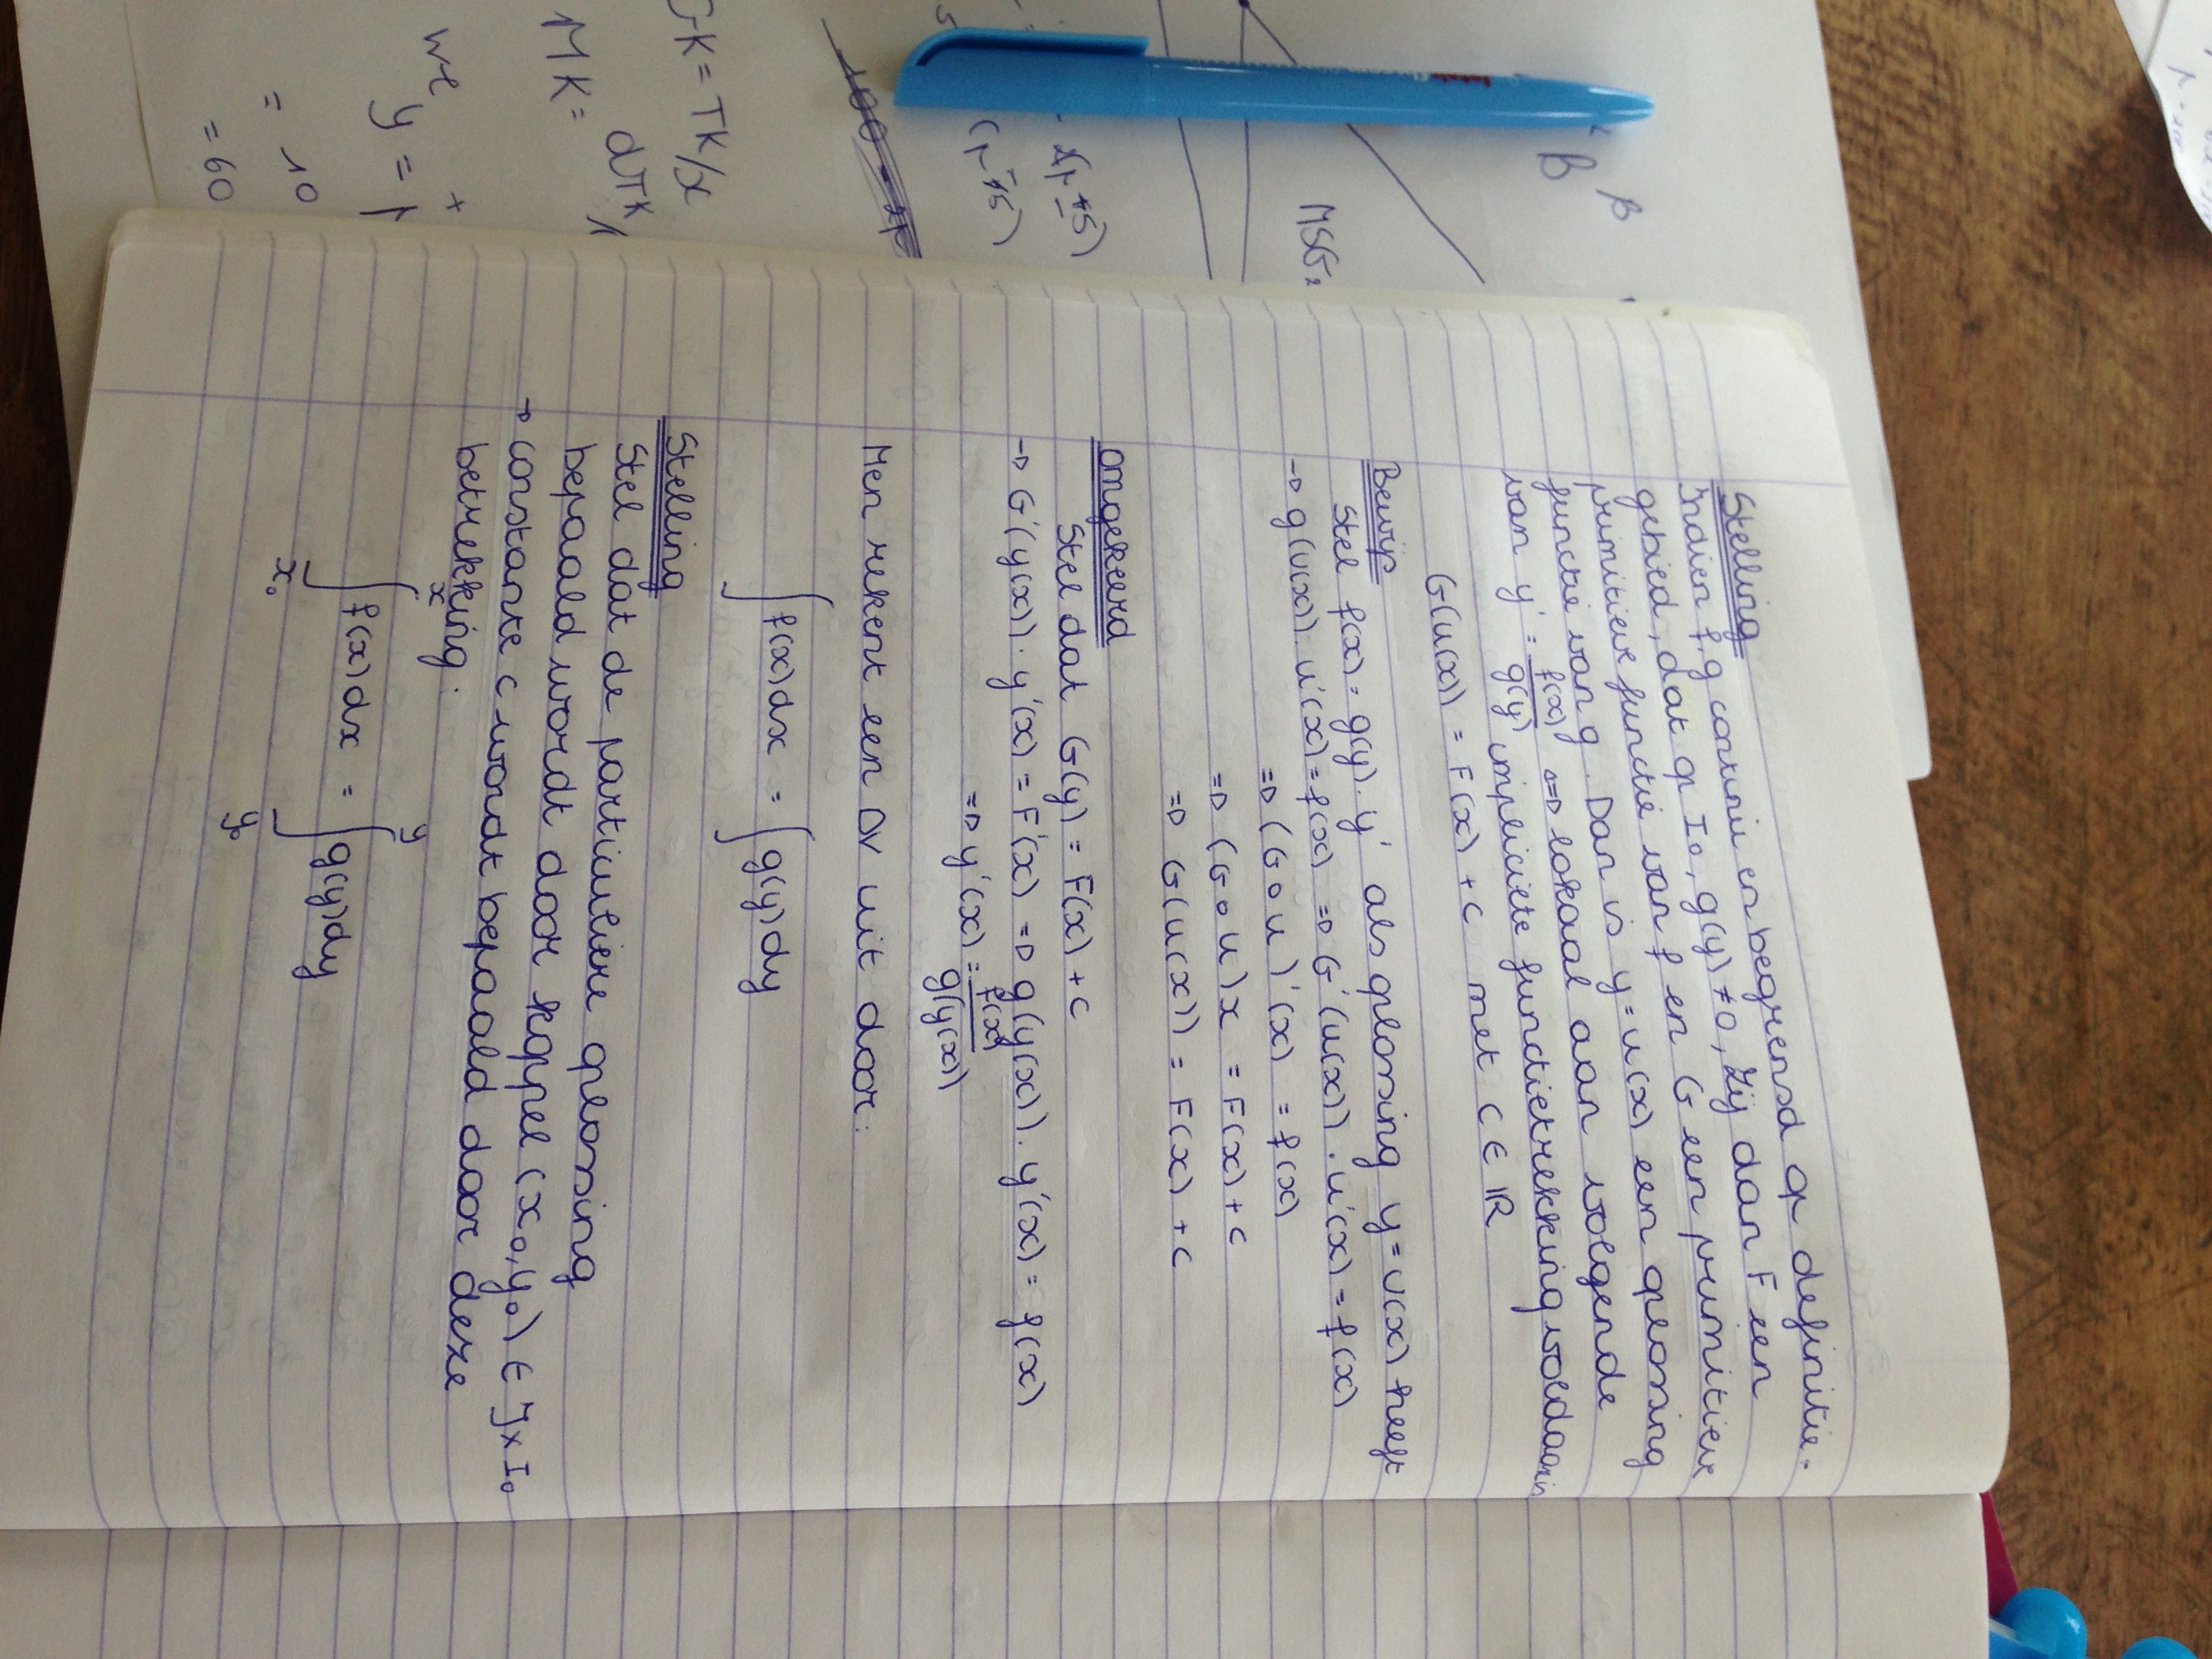 Stelling
Indien f, g continu en begrensd op definitie-
gebied, dat op I₀, g(y) ≠ 0, Zij dan F een
primitieve functie van f en G een primitieve
functie van g. Dan is y = u(x) een oplossing
van y' = f(x)/g(y) <=> lokaal aan volgende
impliciete functietrekking voldaan is
G(u(x)) = F(x) + C met C ∈ ℝ
Bewijs
Stel f(x) = g(y) . y' als oplossing y = u(x) heeft
→ g(u(x)) . u'(x) = f(x) => G'(u(x)) . u'(x) = f(x)
=> (G o u)'(x) = f(x)
=> (G o u)x = F(x) + C
=> G(u(x)) = F(x) + C
Omgekeerd
Stel dat G(y) = F(x) + C
→ G'(y(x)) . y'(x) = F'(x) => g(y(x)) . y'(x) = f(x)
=> y'(x) = f(x)/g(y(x))
Men rekent een DV uit door:
∫ f(x)dx = ∫ g(y)dy
Stelling
Stel dat de particuliere oplossing
bepaald wordt door koppel (x₀, y₀) ∈ J x I₀
→ constante c wordt bepaald door deze
betrekking:
x y
∫ f(x)dx = ∫ g(y)dy
x₀ y₀
β
B
MSG₂
(p-5)
100 - 2p
GK = TK/x
dTK/
MK =
we
y =
= 10
= 60